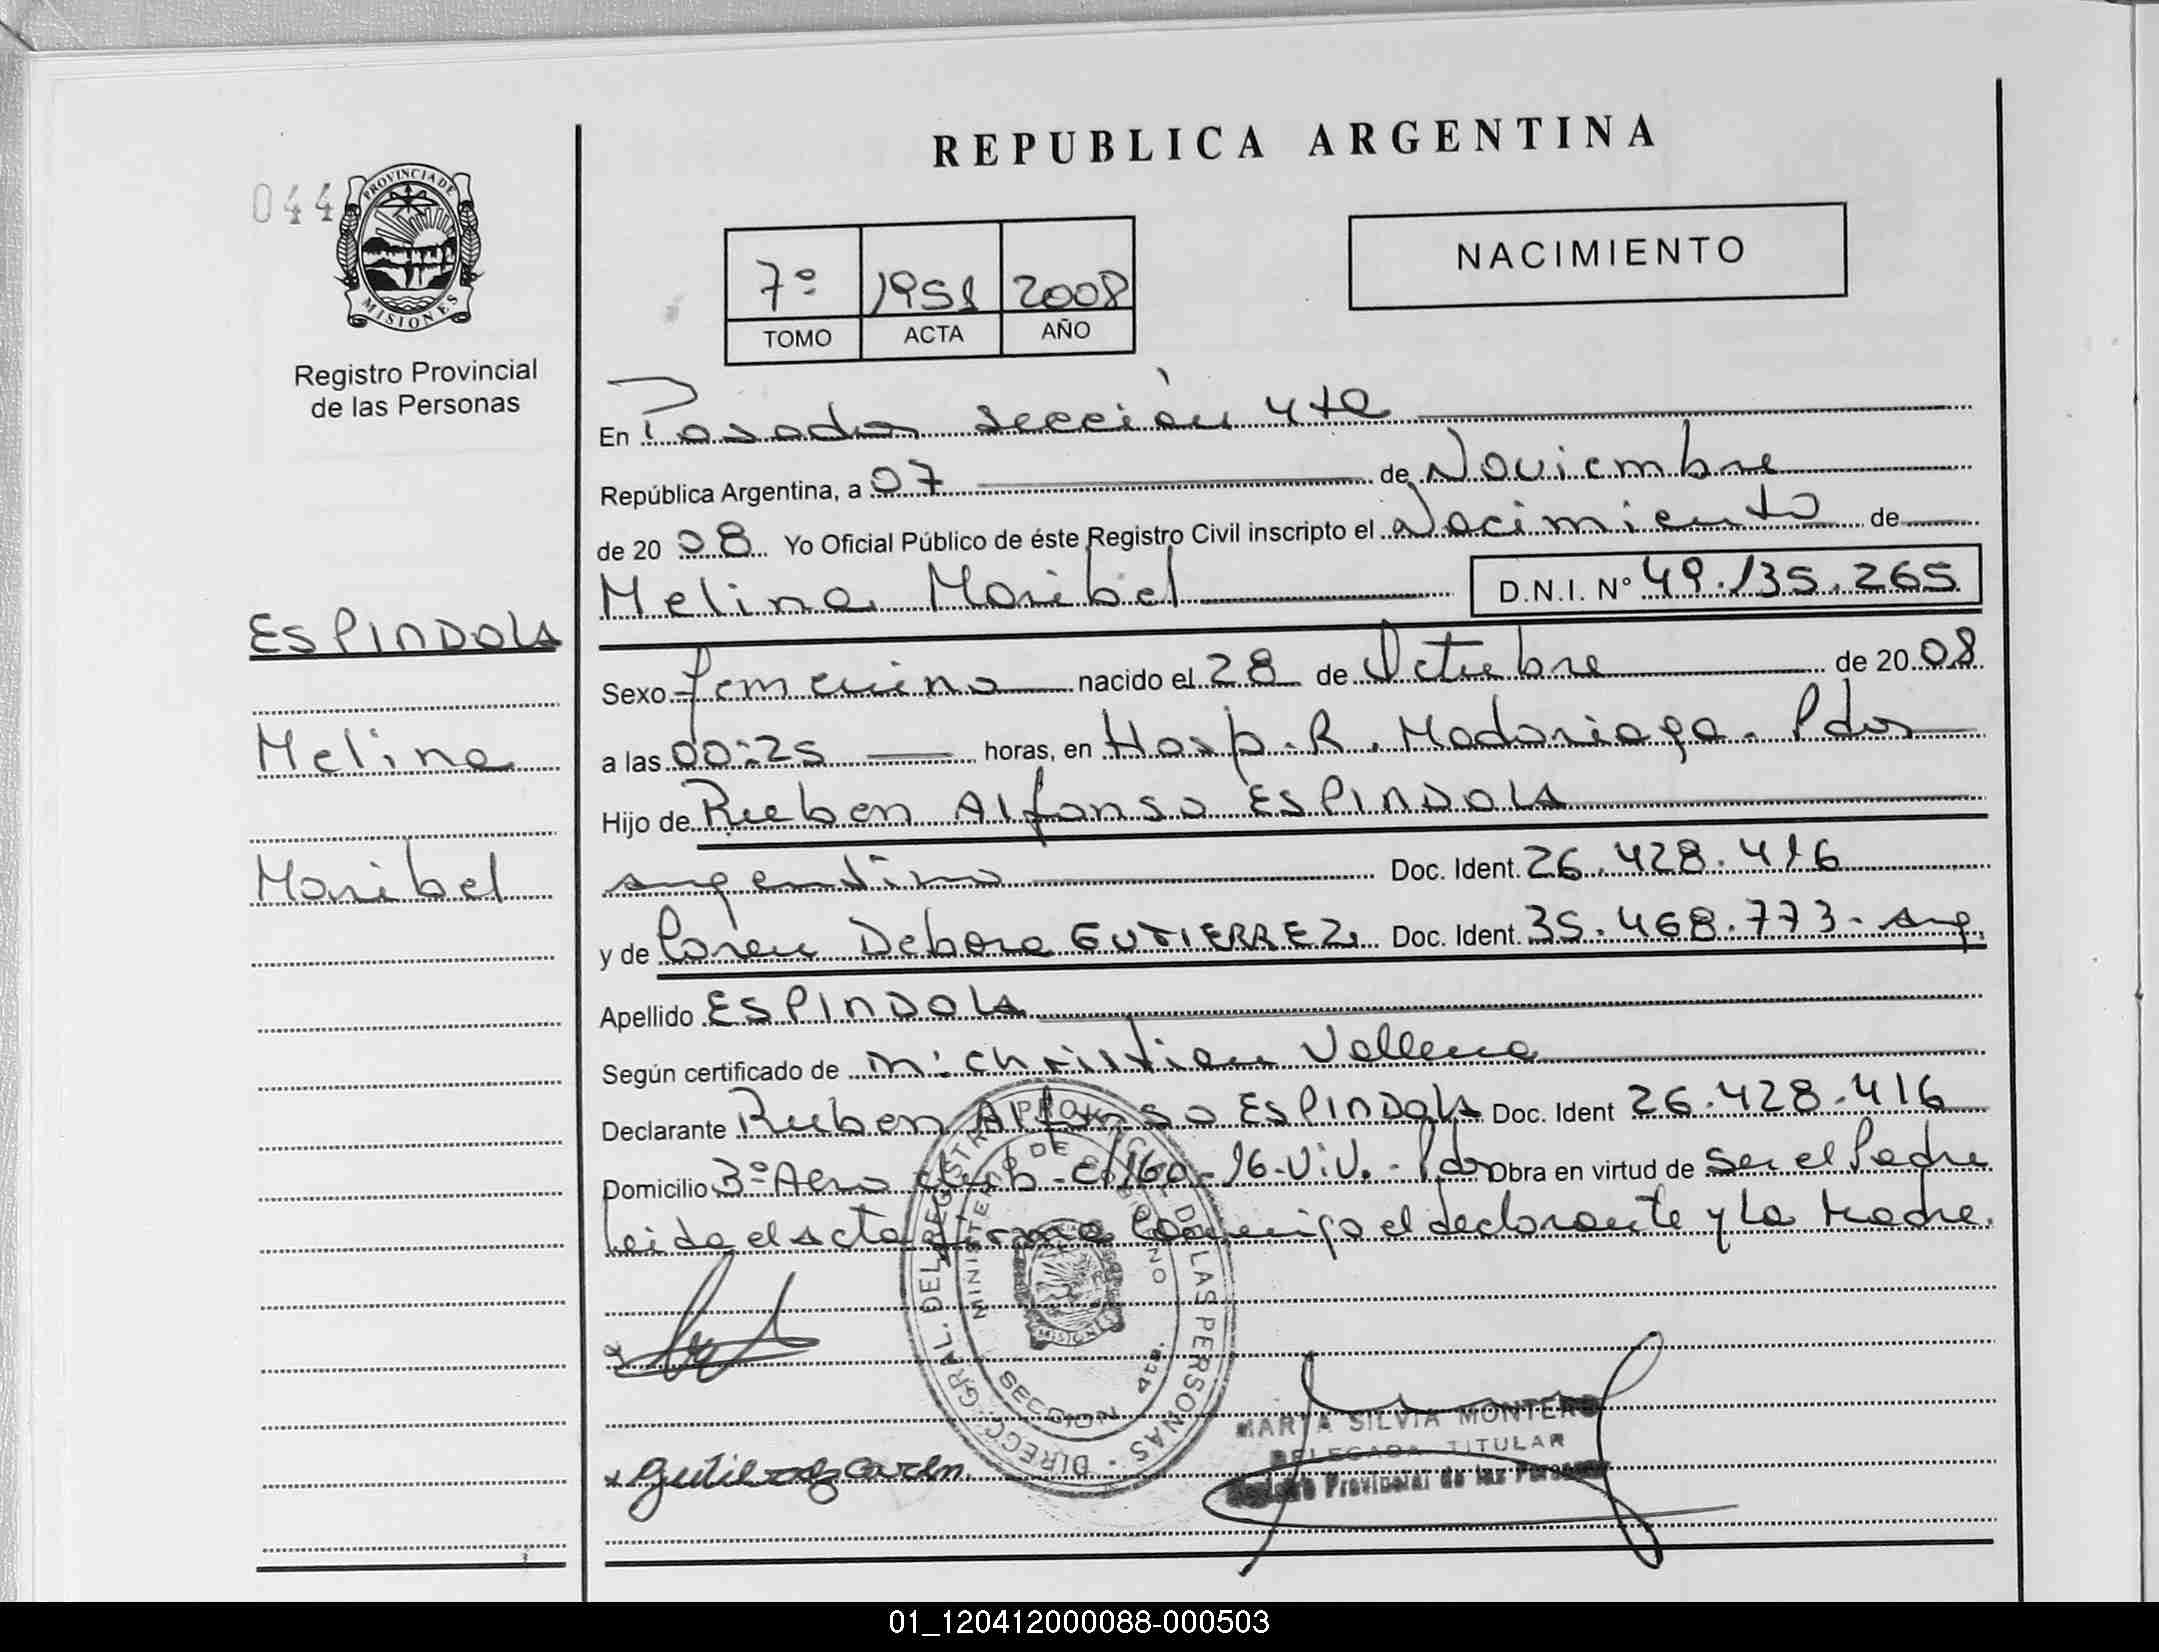 REPUBLICA ARGENTINA
044
PROVINCIA DE
MISIONES
Registro Provincial
de las Personas
NACIMIENTO
7º 1951 2008
TOMO ACTA AÑO
En Posadas sección 4ta
República Argentina, a 07 de Noviembre
de 2008 Yo Oficial Público de éste Registro Civil inscripto el Nacimiento de
Melina Maribel D.N.I. Nº 49.135.265
ESPINDOLA
Melina
Maribel
Sexo femenino nacido el 28 de Octubre de 2008
a las 00:25 horas, en Hosp. R. Madariaga. Pdas
Hijo de Ruben Alfonso ESPINDOLA
argentino Doc. Ident. 26.428.416
y de Coren Debora GUTIERREZ Doc. Ident. 35.468.773 - arg.
Apellido ESPINDOLA
Según certificado de m: Christian
Declarante Ruben Alfonso ESPINDOLA Doc. Ident 26.428.416
Domicilio 3º Aero club - c/160 - 16 Viv. - Pdas Obra en virtud de ser el Padre
Leida el acta firma conmigo el declarante y la Madre.
DIRECC. GRAL. DEL REGISTRO PROVINCIAL DE LAS PERSONAS
MINISTERIO DE GOBIERNO
MISIONES
SECCION 4ta.
x Gutierrez Coren
MARTA SILVIA MONTERO
DELEGADA TITULAR
Registro Provincial de las Personas
01_120412000088-000503